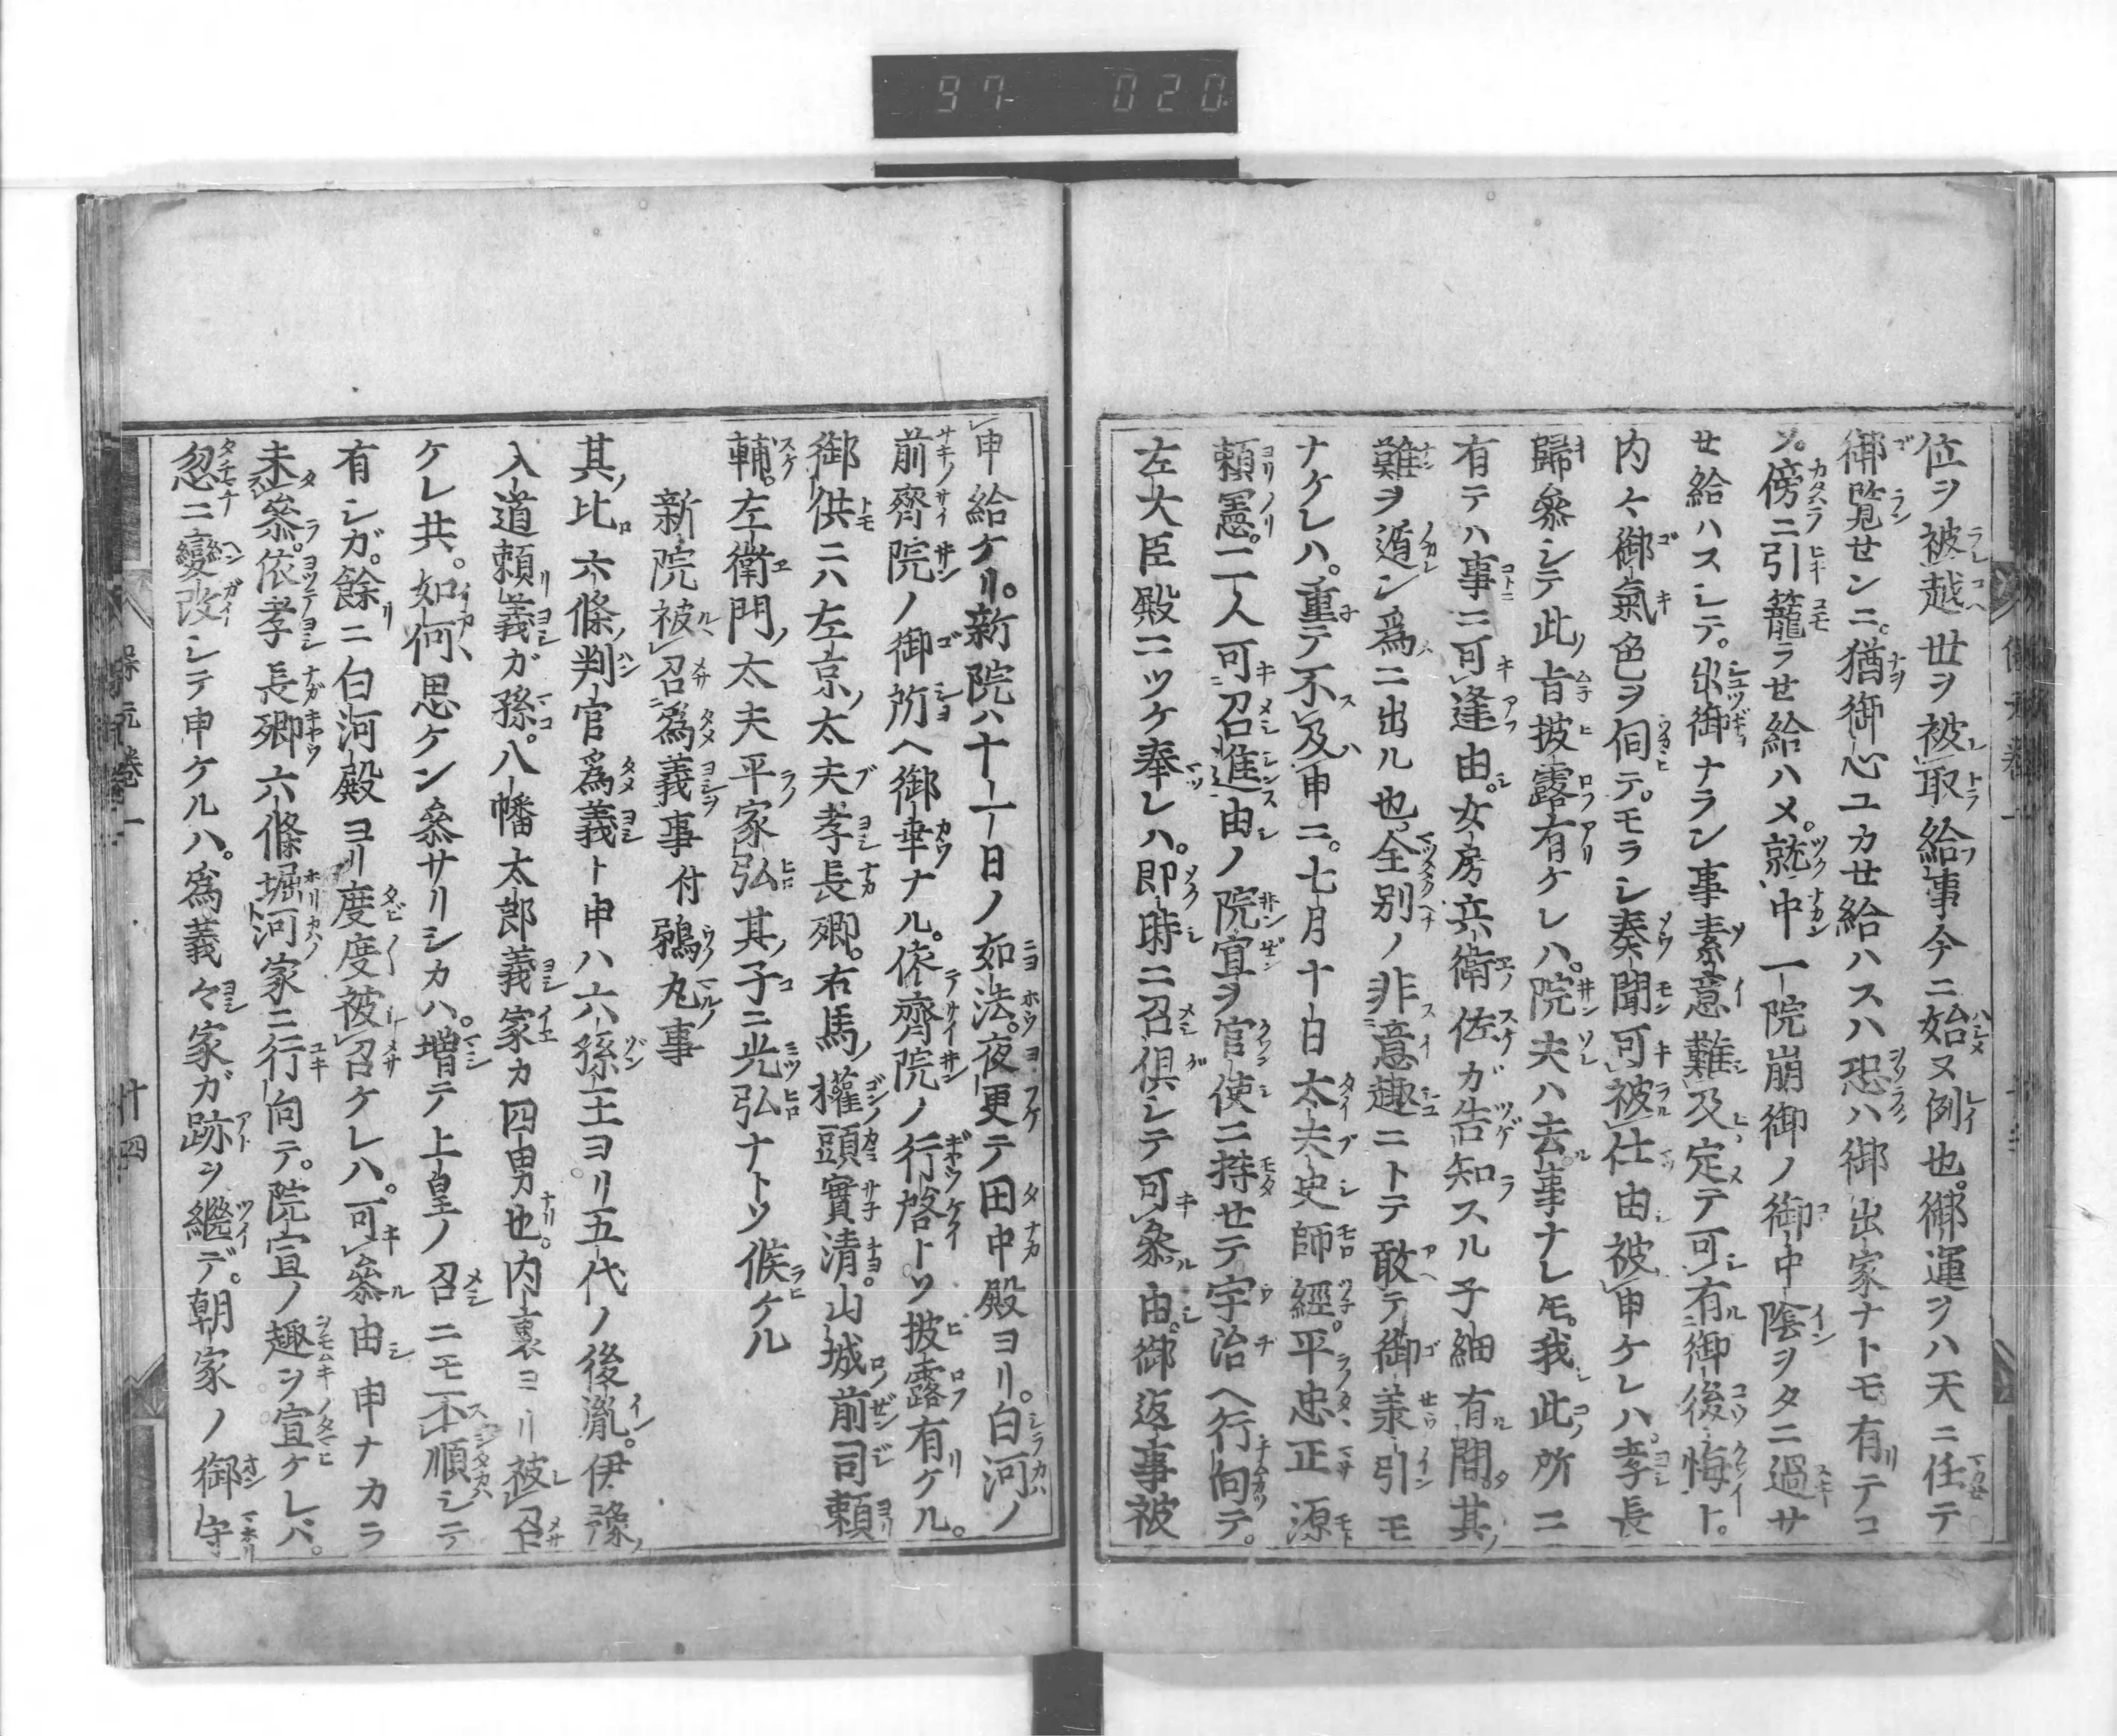 97 020
位ヲ被越世ヲ被取給事今ニ始ヌ例也。御運ヲハ天ニ任テ
御覧せンニ。猶御心ユカせ給ハスハ恐ハ御出家ナトモ有テコ
ソ。傍ニ引籠ラせ給ハメ。就中一院崩御ノ御中陰ヲタニ過サ
せ給ハスシテ。出御ナラン事素意難及定テ可有御後悔ト。
内々御氣色ヲ伺テ。モラシ奏聞可被仕由被申ケレハ。孝長
歸參シテ此旨披露有ケレハ。院夫ハ去事ナレ𪜈。我此所ニ
有テハ事ニ可逢由。女房兵衛佐ガ告知スル子細有間。其
難ヲ遁ン爲ニ出ル也。全別ノ非意趣ニトテ敢テ御羕引モ
ナケレハ。重テ不及申ニ。七月十日太夫史師經。平忠正源
頼憲。二人可召進由ノ院宣ヲ官使ニ持せテ宇治ヘ行向テ。
左大臣殿ニツケ奉レハ。即時ニ召俱シテ可參由。御返事被
申給ケリ。新院ハ十一日ノ如法。夜更テ田中殿ヨリ。白河ノ
前齊院ノ御所ヘ御幸ナル。依齊院ノ行啓トソ披露有ケル。
御供ニハ左京太夫孝長卿。右馬權頭實清。山城前司頼
輔。左衛門太夫平家弘其子ニ光弘ナトソ候ケル
新院被召爲義事付鵜丸事
其比六條判官爲義ト申ハ六孫王ヨリ五代ノ後胤。伊豫
入道頼義ガ孫。八幡太郎義家カ四男也。内裏ヨリ被召
ケレ共。如何思ケン參サリシカハ。増テ上皇ノ召ニモ不順シテ
有シガ。餘ニ白河殿ヨリ度度被召ケレハ。可參由申ナカラ
未參。依孝長卿六條堀河家ニ行向テ。院宣ノ趣ヲ宣ケレバ。
忽ニ變改シテ申ケルハ。爲義々家ガ跡ヲ繼デ。朝家ノ御守
保元卷一
十四